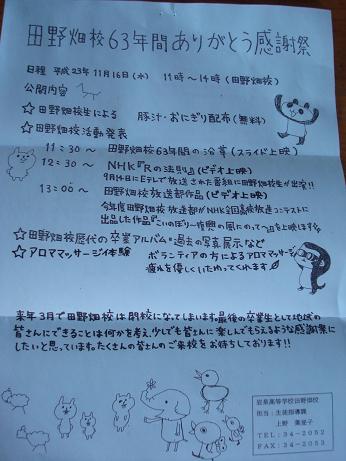 田野畑校63年間ありがとう感謝祭
日程 平成23年11月16日(水) 11時~14時(田野畑校)
公開内容
☆田野畑校生による 豚汁・おにぎり配布(無料)
☆田野畑校活動発表
11:30 ~ 田野畑校63年間の沿革(スライド上映)
12:30 ~ NHK『Rの法則』(ビデオ上映)
9月14日にEテレで放送された番組に田野畑校生が出演!!
13:00 ~ 田野畑校放送部作品(ビデオ上映)
今年度田野畑校放送部がNHK全国高校放送コンテストに
出品した作品『こいのぼり~復興の風にのって~』を上映します
☆田野畑校歴代の卒業アルバム・過去の写真展示など
☆アロママッサージ体験 ボランティアの方によるアロママッサージ
疲れを優しくいためてくれます
来年3月で田野畑校は閉校になってしまいます。最後の卒業生として地域の
皆さんにできることは何かを考え、少しでも皆さんに楽しんでもらえるような感謝祭に
したいと思っています。たくさんの皆さんのご来校をお待ちしております!!
岩泉高等学校田野畑校
担当:生徒指導課
上野
TEL:34-2052
FAX:34-2053